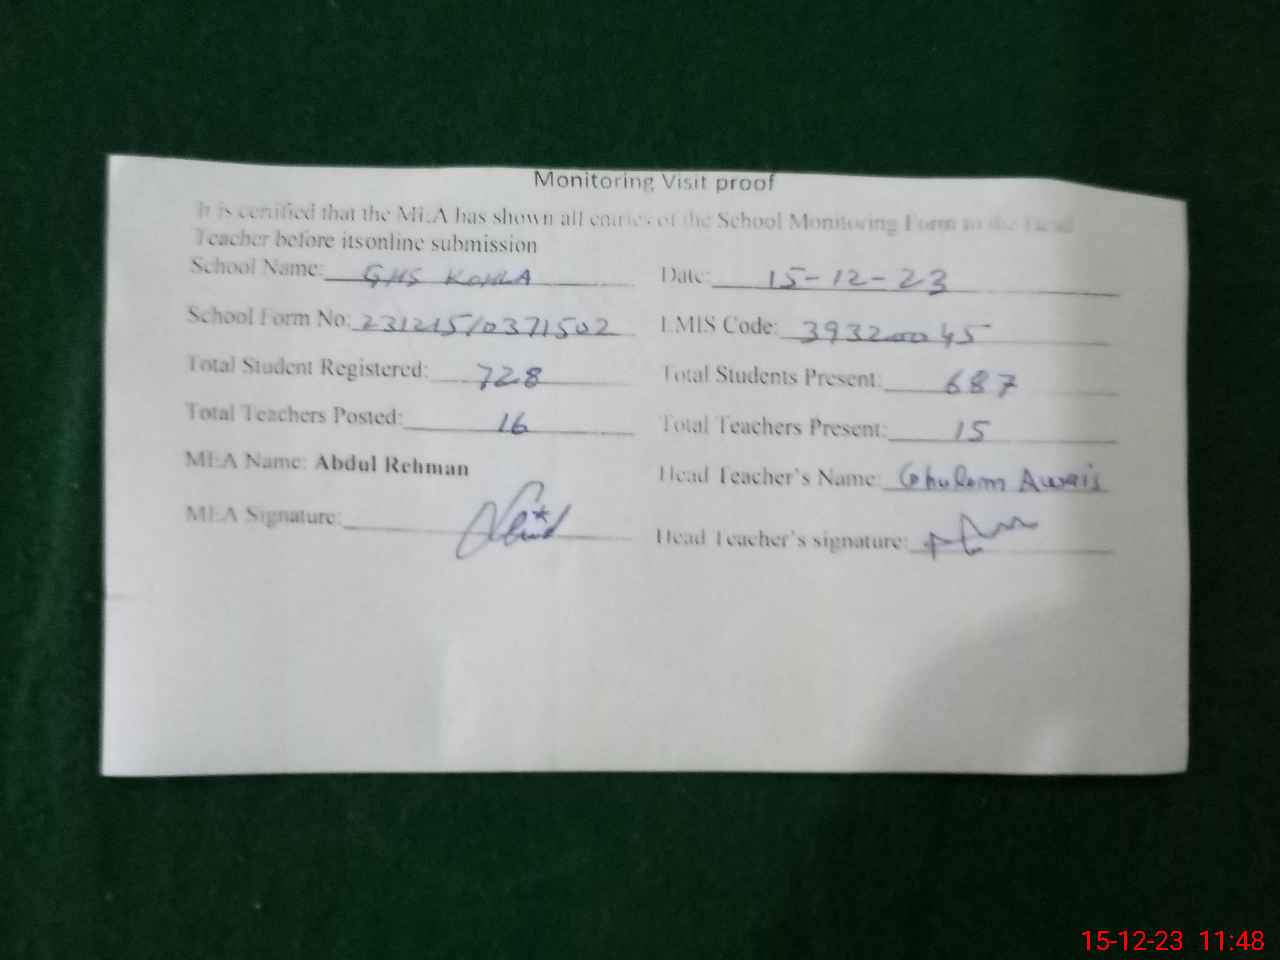 Monitoring Visit proof
It is certified that the MEA has shown all entries of the School Monitoring Form to the Head
Teacher before itsonline submission
School Name: GHS KOHLA Date: 15-12-23
School Form No: 23121510371502 EMIS Code: 39320045
Total Student Registered: 728 Total Students Present: 687
Total Teachers Posted: 16 Total Teachers Present: 15
MEA Name: Abdul Rehman Head Teacher's Name: Ghulam Awais
MEA Signature: Head Teacher's signature:
15-12-23 11:48